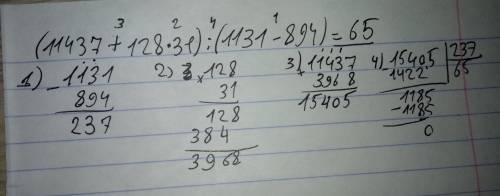 3 2 4 1
(11437 + 128·31) : (1131 - 894) = 65
1) - 1131 2) × 128 3) + 11437 4) - 15405 | 237
894 31 3968 1422 65
237 128 15405 1185
384 - 1185
3968 0